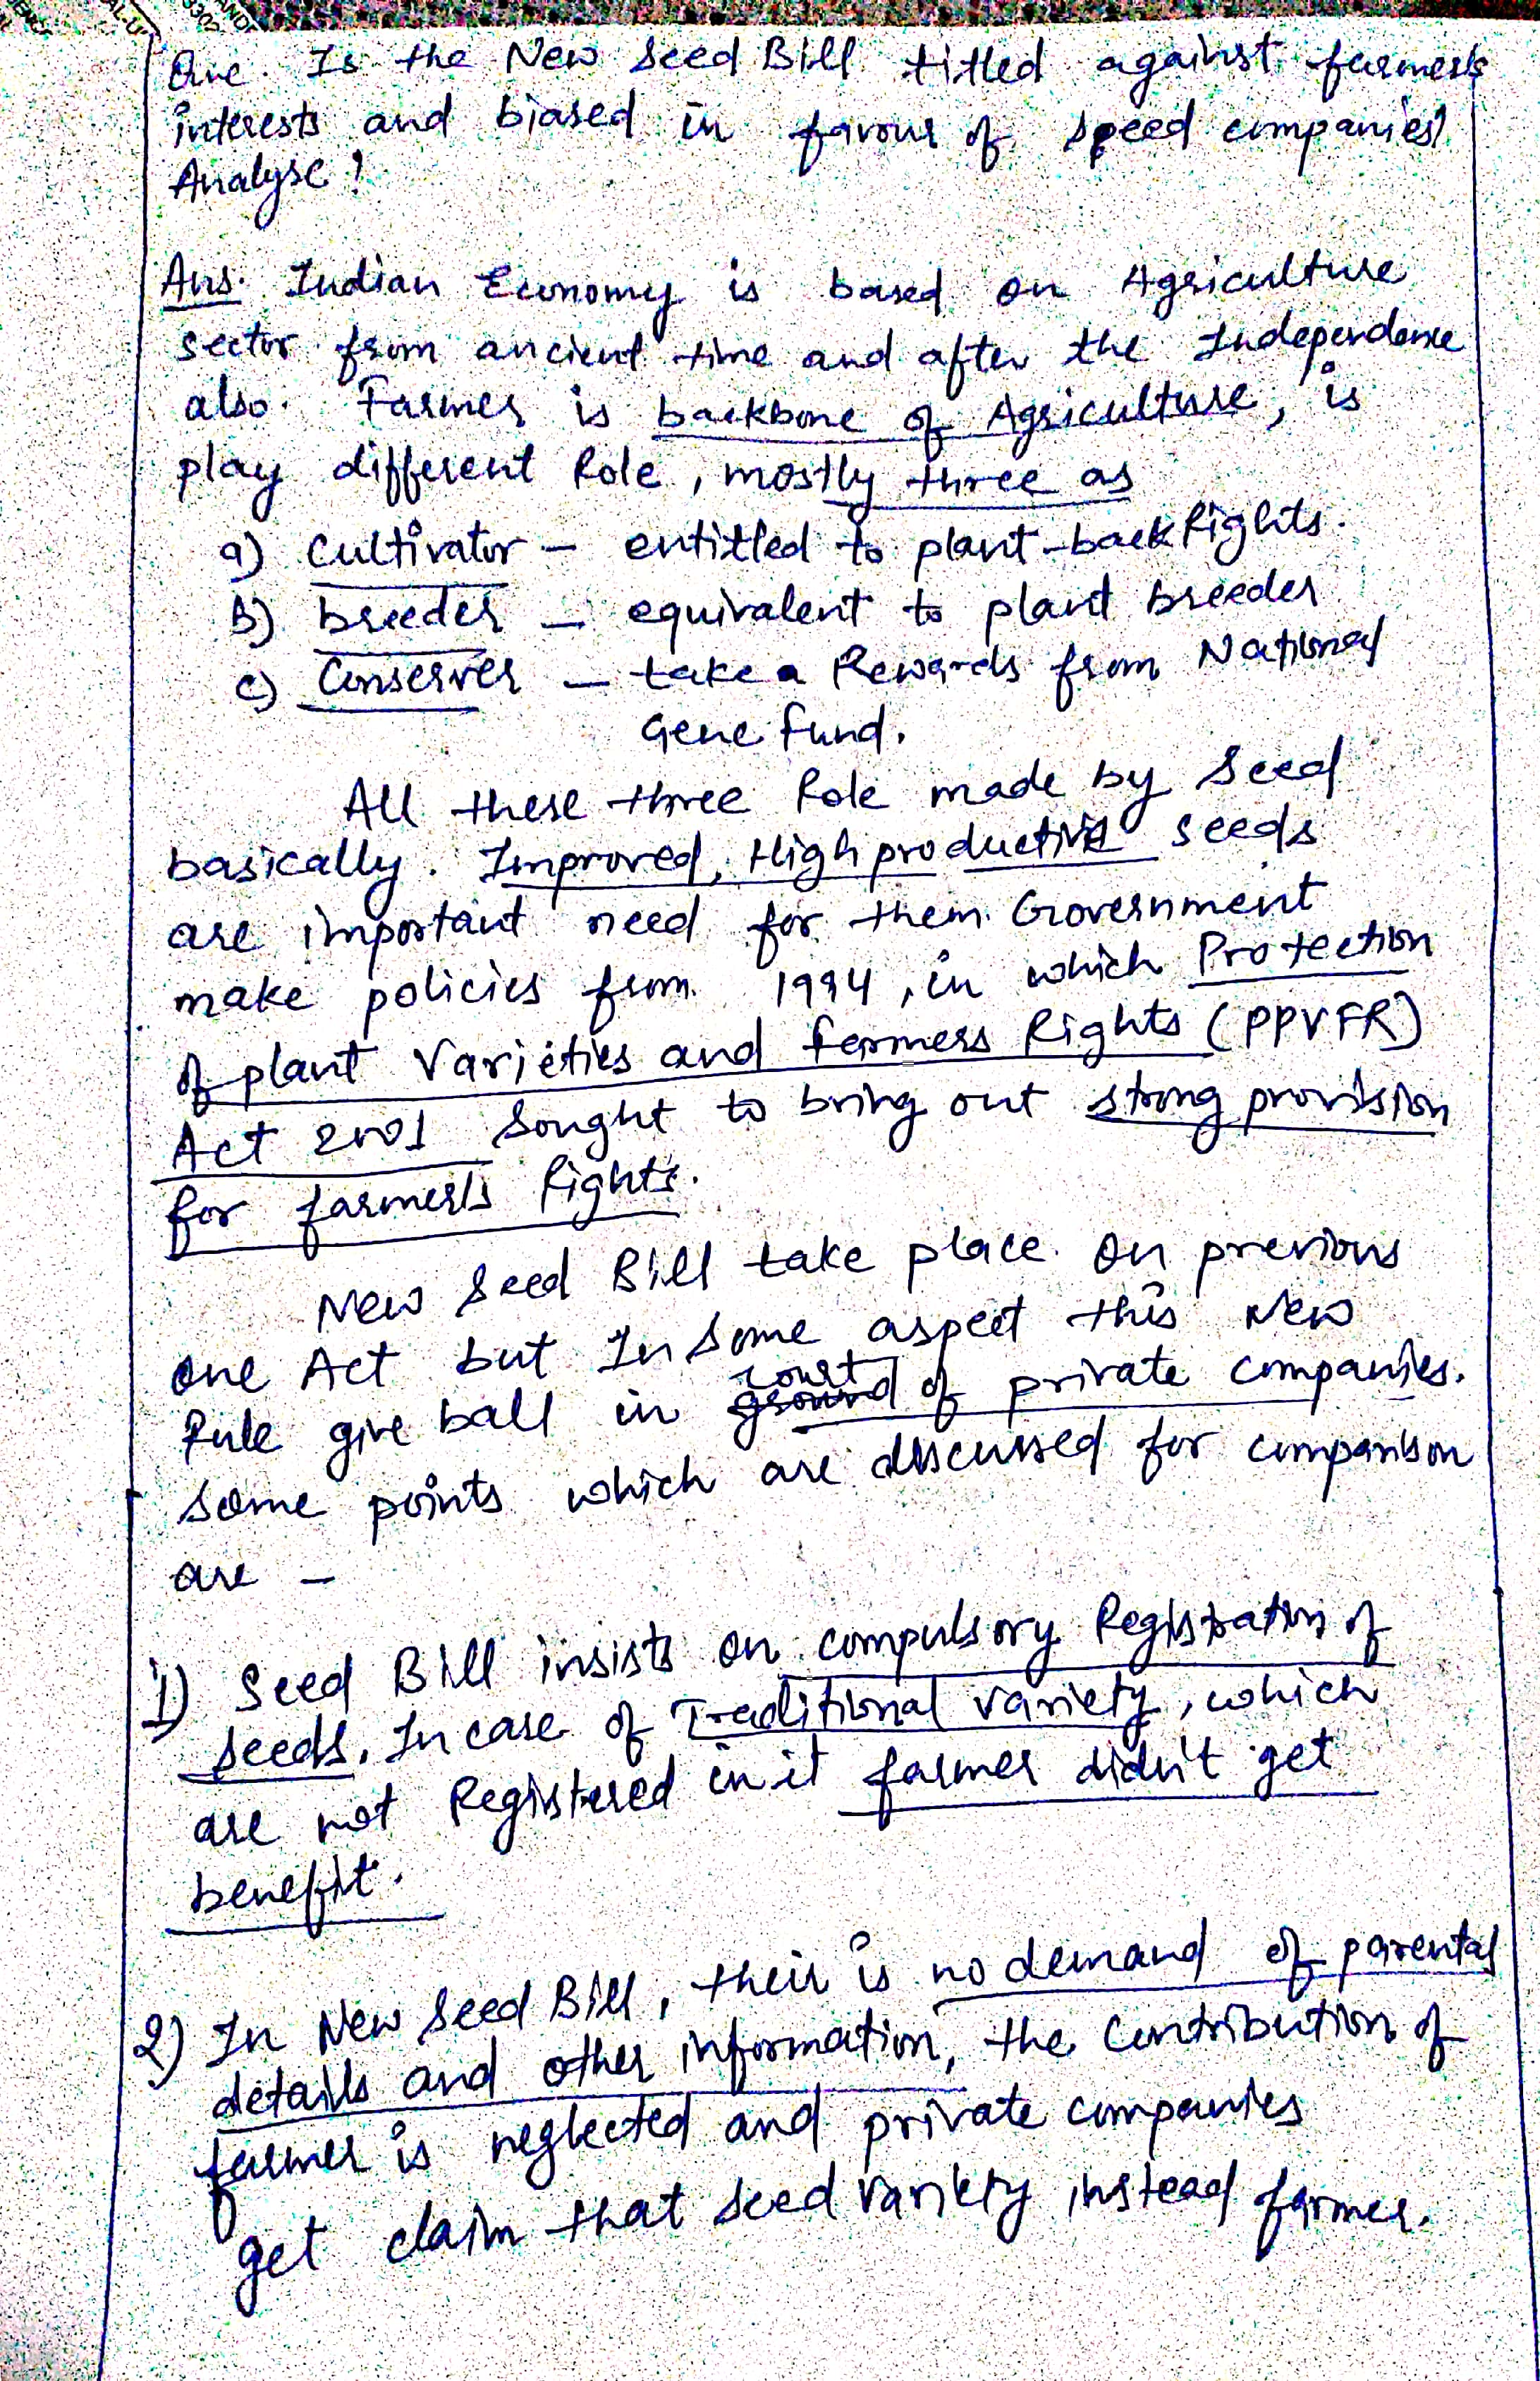 Que. Is the New Seed Bill titled against farmer's
interests and biased in favour of speed companies?
Analyse!
Ans. Indian Economy is based on Agriculture
sector from ancient time and after the Independence
also. Farmer is backbone of Agriculture, is
play different Role, mostly three as
a) Cultivator - entitled to plant-back Rights.
b) breeder - equivalent to plant breeder
c) Conserver - take a Rewards from National
Gene fund.
All these three Role made by Seed
basically. Improved, High productive seeds
are important need for them. Government
make policies from 1994, in which Protection
of plant Varieties and farmers Rights (PPVFR)
Act 2001 Sought to bring out strong provision
for farmer's Rights.
New Seed Bill take place on previous
one Act but In some aspect this New
Rule give ball in court of private companies.
Some points which are discussed for comparison
are -
1) Seed Bill insists on compulsory Registration of
seeds. In case of Traditional variety, which
are not Registered in it farmer didn't get
benefit.
2) In New Seed Bill, their is no demand of parental
details and other information, the Contribution of
farmer is neglected and private companies
get claim that seed variety instead farmer.